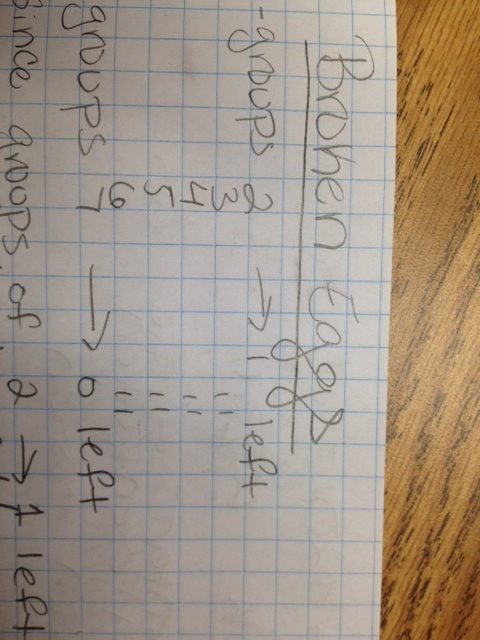 Broken Eggs
-groups 2 → 1 left
3 " "
4 " "
5 " "
6 " "
groups 7 → 0 left
Since groups of 2 → 1 left